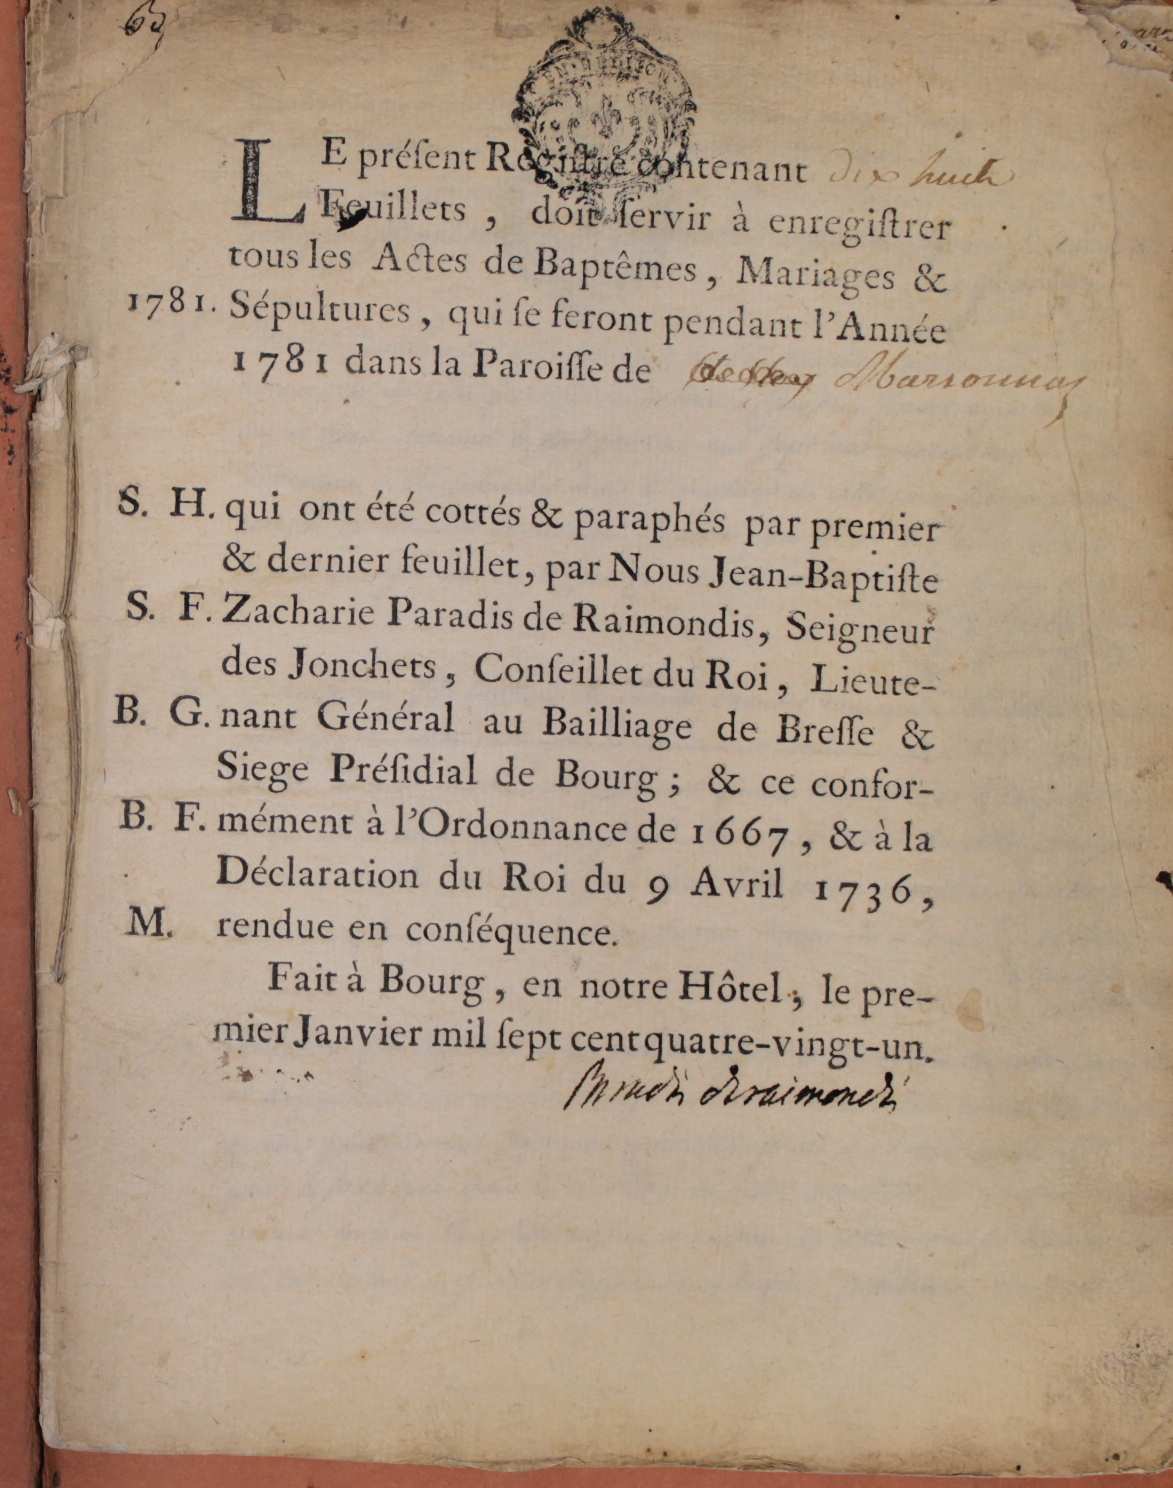 63
LE préſent Regiſtre contenant dix huit
Feuillets, doit ſervir à enregiſtrer
tous les Actes de Baptêmes, Mariages &
1781. Sépultures, qui ſe feront pendant l'Année
1781 dans la Paroiſſe de Marsonnas
S. H. qui ont été cottés & paraphés par premier
& dernier feuillet, par Nous Jean-Baptiſte
S. F. Zacharie Paradis de Raimondis, Seigneur
des Jonchets, Conſeillet du Roi, Lieute-
B. G. nant Général au Bailliage de Breſſe &
Siege Préſidial de Bourg; & ce confor-
B. F. mément à l'Ordonnance de 1667, & à la
Déclaration du Roi du 9 Avril 1736,
M. rendue en conſéquence.
Fait à Bourg, en notre Hôtel, le pre-
mier Janvier mil ſept cent quatre-vingt-un.
Paradis deraimondis